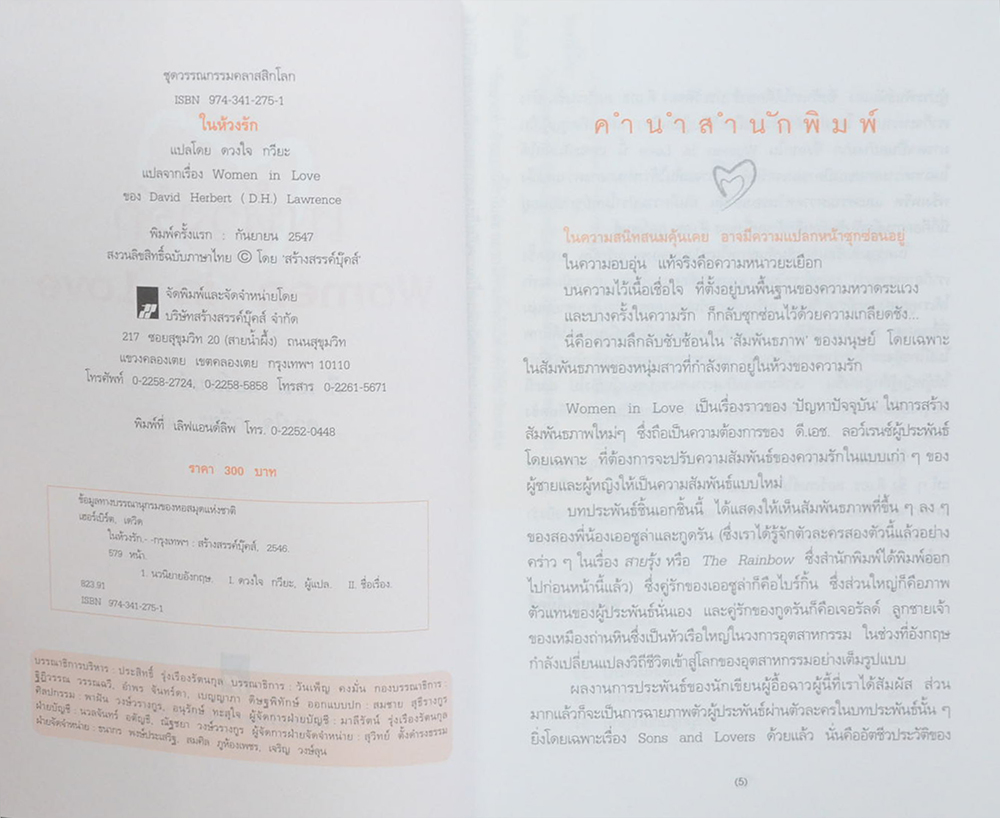 ชุดวรรณกรรมคลาสสิกโลก
ISBN 974-341-275-1
ในห้วงรัก
แปลโดย ดวงใจ กวียะ
แปลจากเรื่อง Women in Love
ของ David Herbert (D.H.) Lawrence
พิมพ์ครั้งแรก : กันยายน 2547
สงวนลิขสิทธิ์ฉบับภาษาไทย © โดย 'สร้างสรรค์บุ๊คส์'
จัดพิมพ์และจัดจำหน่ายโดย
บริษัทสร้างสรรค์บุ๊คส์ จำกัด
217 ซอยสุขุมวิท 20 (สายน้ำผึ้ง) ถนนสุขุมวิท
แขวงคลองเตย เขตคลองเตย กรุงเทพฯ 10110
โทรศัพท์ 0-2258-2724, 0-2258-5858 โทรสาร 0-2261-5671
พิมพ์ที่ เลิฟแอนด์ลิพ โทร. 0-2252-0448
ราคา 300 บาท
ข้อมูลทางบรรณานุกรมของหอสมุดแห่งชาติ
เฮอร์เบิร์ต, เดวิด
ในห้วงรัก.- -กรุงเทพฯ : สร้างสรรค์บุ๊คส์, 2546.
579 หน้า.
1. นวนิยายอังกฤษ. I. ดวงใจ กวียะ, ผู้แปล. II. ชื่อเรื่อง.
823.91
ISBN 974-341-275-1
บรรณาธิการบริหาร : ประสิทธิ์ รุ่งเรืองรัตนกุล บรรณาธิการ : วันเพ็ญ คงมั่น กองบรรณาธิการ :
ฐิฏิวรรณ วรรณฉวี, อำพร จันทร์ดา, เบญญาภา ดิษฐพิทักษ์ ออกแบบปก : สมชาย สุธีรางกูร
ศิลปกรรม : พามัน วงษ์วรางกูร, อนุรักษ์ ทะสุใจ ผู้จัดการฝ่ายบัญชี : มาลีรัตน์ รุ่งเรืองรัตนกุล
ฝ่ายบัญชี : นวลจันทร์ อตัญชี, ณัฐชยา วงษ์วรางกูร ผู้จัดการฝ่ายจัดจำหน่าย : สุวิทย์ ตั้งดำรงธรรม
ฝ่ายจัดจำหน่าย : ธนากร พงษ์ประเสริฐ, สมคิด ภูห้องเพชร, เจริญ วงษ์ลุน
คำนำสำนักพิมพ์
ในความสนิทสนมคุ้นเคย อาจมีความแปลกหน้าซุกซ่อนอยู่
ในความอบอุ่น แท้จริงคือความหนาวยะเยือก
บนความไว้เนื้อเชื่อใจ ที่ตั้งอยู่บนพื้นฐานของความหวาดระแวง
และบางครั้งในความรัก ก็กลับซุกซ่อนไว้ด้วยความเกลียดชัง...
นี่คือความลึกลับซับซ้อนใน 'สัมพันธภาพ' ของมนุษย์ โดยเฉพาะ
ในสัมพันธภาพของหนุ่มสาวที่กำลังตกอยู่ในห้วงของความรัก
Women in Love เป็นเรื่องราวของ 'ปัญหาปัจจุบัน' ในการสร้าง
สัมพันธภาพใหม่ๆ ซึ่งถือเป็นความต้องการของ ดี.เอช. ลอว์เรนซ์ผู้ประพันธ์
โดยเฉพาะ ที่ต้องการจะปรับความสัมพันธ์ของความรักในแบบเก่า ๆ ของ
ผู้ชายและผู้หญิงให้เป็นความสัมพันธ์แบบใหม่
บทประพันธ์ชิ้นเอกชิ้นนี้ ได้แสดงให้เห็นสัมพันธภาพที่ขึ้น ๆ ลง ๆ
ของสองพี่น้องเออซูล่าและกูดรัน (ซึ่งเราได้รู้จักตัวละครสองตัวนี้แล้วอย่าง
คร่าว ๆ ในเรื่อง สายรุ้ง หรือ The Rainbow ซึ่งสำนักพิมพ์ได้พิมพ์ออก
ไปก่อนหน้านี้แล้ว) ซึ่งคู่รักของเออซูล่าก็คือเบร์กิ้น ซึ่งส่วนใหญ่ก็คือภาพ
ตัวแทนของผู้ประพันธ์นั่นเอง และคู่รักของกูดรันก็คือเจอรัลด์ ลูกชายเจ้า
ของเหมืองถ่านหินซึ่งเป็นหัวเรือใหญ่ในวงการอุตสาหกรรม ในช่วงที่อังกฤษ
กำลังเปลี่ยนแปลงวิถีชีวิตเข้าสู่โลกของอุตสาหกรรมอย่างเต็มรูปแบบ
ผลงานการประพันธ์ของนักเขียนผู้อื้อฉาวผู้นี้ที่เราได้สัมผัส ส่วน
มากแล้วก็จะเป็นการฉายภาพตัวผู้ประพันธ์ผ่านตัวละครในบทประพันธ์นั้น ๆ
ยิ่งโดยเฉพาะเรื่อง Sons and Lovers ด้วยแล้ว นั่นคืออัตชีวประวัติของ
(5)